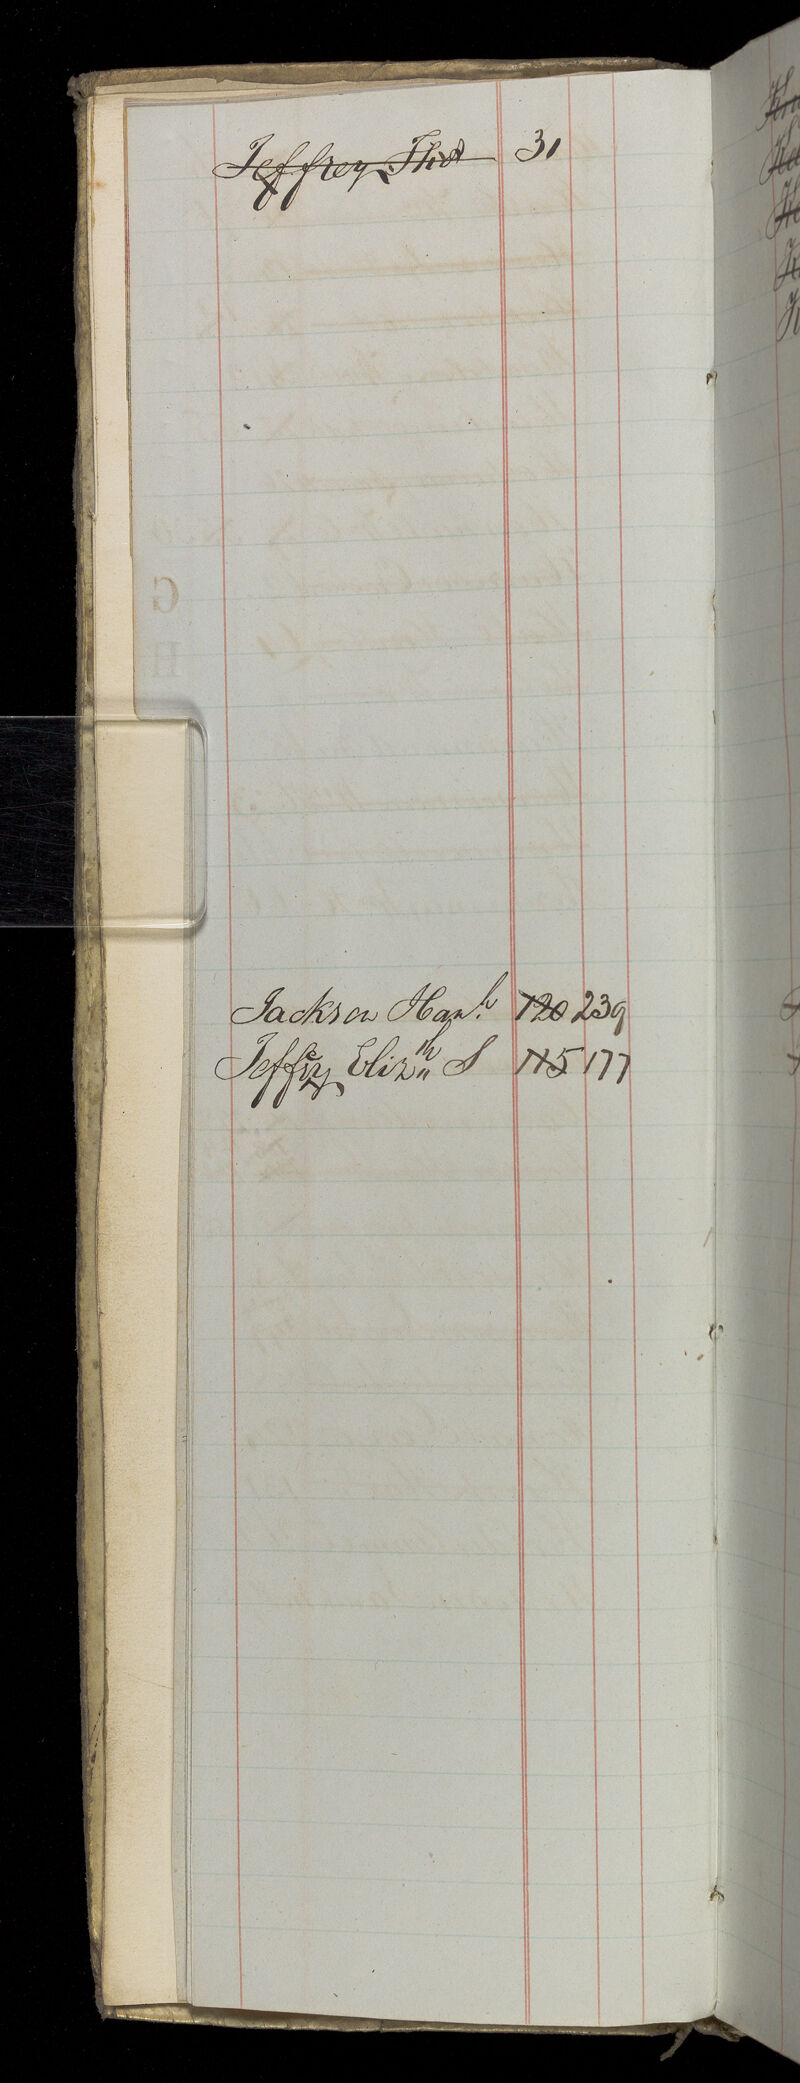 Jeffrey Thos 31
Jackson Hanh 120 239
Jeffrey Elizth S 115 177